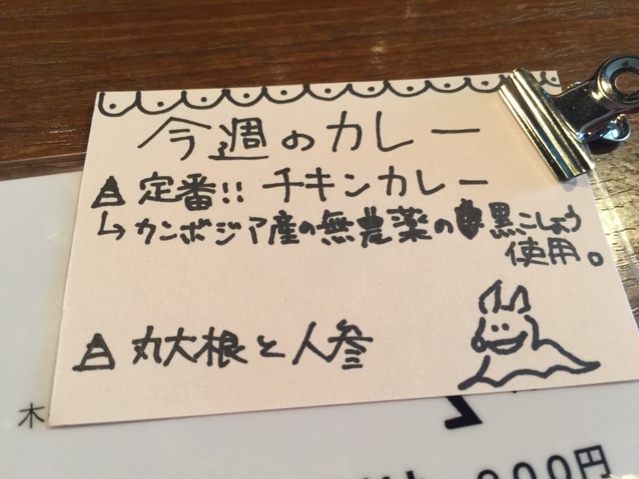 今週のカレー
定番!! チキンカレー
↳カンボジア産の無農薬の黒こしょう
使用。
丸大根と人参
木
900円